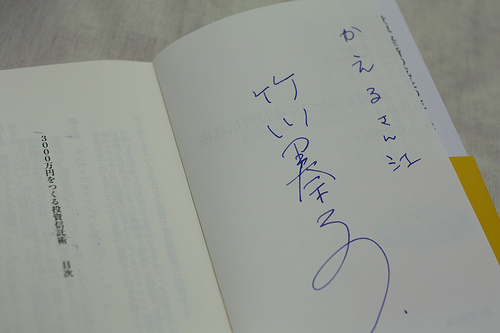 かえるさん江
竹川美奈子
3000万円をつくる投資信託術 目次